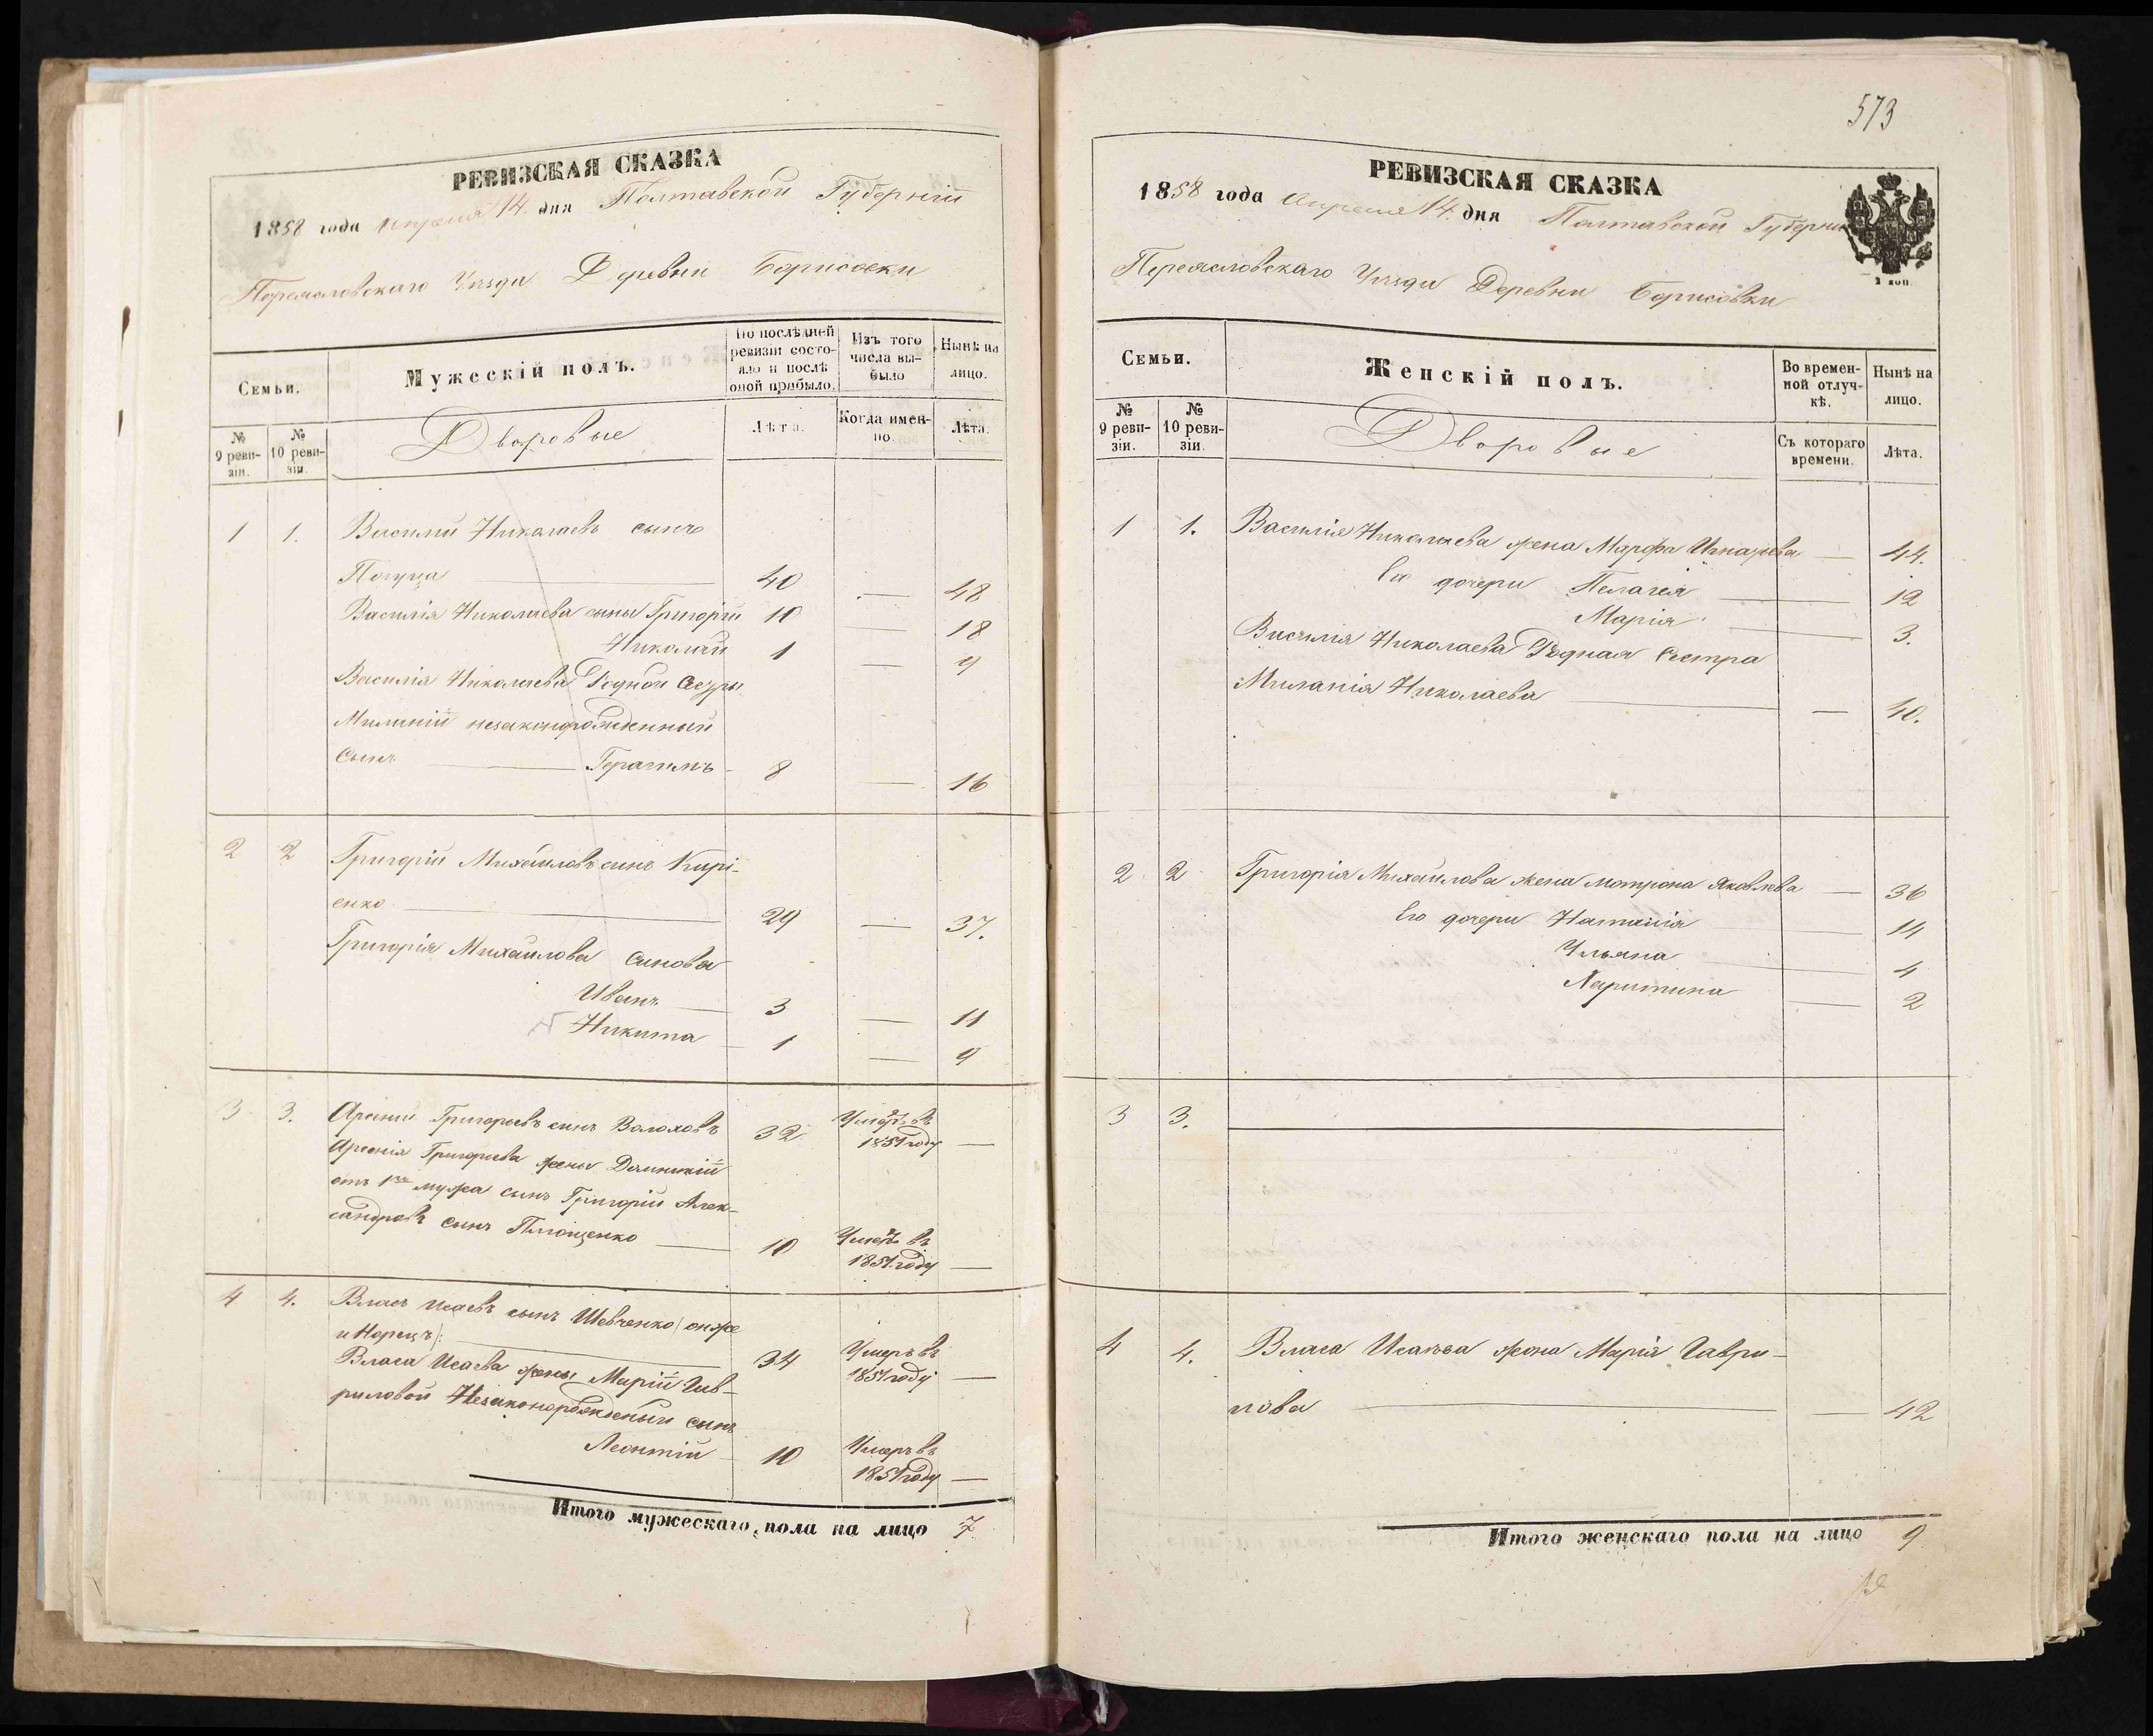 РЕВИЗСКАЯ СКАЗКА
1858 года апреля 14 дня Полтавской Губерніи
Переяславскаго Уезда Деревни Борисовки
Семьи.
№ 9 ревизіи.
№ 10 ревизіи.
Мужескій полъ.
Дворовые
По послѣдней ревизіи состояло и послѣ оной прибыло.
Лѣта.
Изъ того числа выбыло
Когда именно.
Нынѣ на лицо.
Лѣта.
1 1. Василий Николаевъ сынъ
40 — 48
Василія Николаева сыны Григорій 10 — 18
Николай 1 — 9
Василія Николаева Родной Сестры
Миланіи незаконорожденный
Сынъ — Герасимъ 8 — 16
2 2 Григорій Михайловъ синъ Кирі-
енко 29 — 37.
Григорія Михайлова синовья
Иванъ 3 — 11
Никита 1 — 9
3 3. Арсений Григорьевъ синъ Волоховъ 32 Умеръ въ
1851 году —
Арсенія Григорьева жены
отъ 1го мужа синъ Григорій Алек-
сандровъ сынъ 10 Умеръ въ
1851 году —
4 4. Власъ Исаевъ сынъ Шевченко (онже
и 34 Умеръ въ
1851 году —
Власа Исаева жены Маріи Гав-
риловой Незаконорожденый сынъ
Леонтій 10 Умеръ въ
1851 году —
Итого мужескаго пола на лицо 7
573
РЕВИЗСКАЯ СКАЗКА
1858 года Апреля 14 дня Полтавской Губерніи
Переясловскаго Уезда Деревни Борисовки
Семьи.
№ 9 ревизіи.
№ 10 ревизіи.
Женскій полъ.
Дворовые
Во временной отлучкѣ.
Съ котораго времени.
Нынѣ на лицо.
Лѣта.
1 1. Василія Николаева жена Марфа — 44.
Его дочери Пелагея — 12
Марія — 3.
Василія Николаева Родная Сестра
Миланія Николаева — 40.
2 2 Григорія Михайлова жена Мотрона Яковлева — 36
Его дочери Наталія — 14
Ульяна — 4
Харитина — 2
3 3.
4 4. Власа Исаева жена Марія Гаври-
лова — 42
Итого женскаго пола на лицо 9